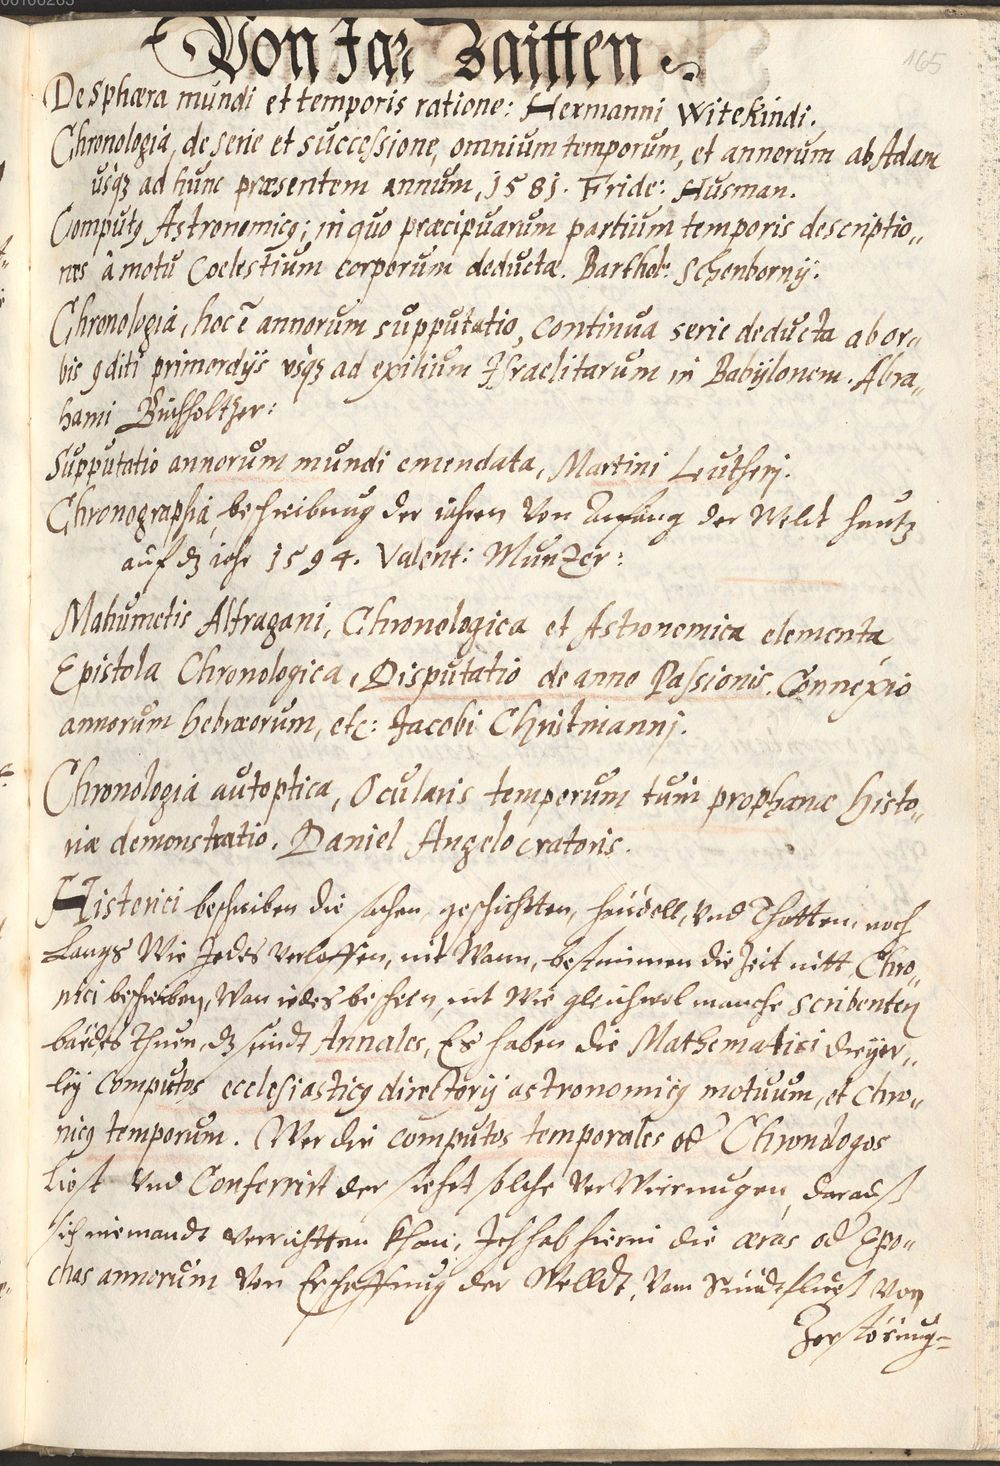 165
Von Jar Zaitten
De Sphæra mundi et temporis ratione: Hermanni Witekindi.
Chronologia, de serie et successione, omnium temporum, et annorum ab Adam
usq3 ad hunc præsentem annum, 1581. Fride: Husman.
Computg Astronomicg; in quo præcipuarum partium temporis descriptio„
nes â motu Coelestium corporum deductæ. Barthol: Schenbornij:
Chronologia, hoc ē annorum supputatio, continua serie deducta ab or„
bis 9diti primordijs usq3 ad exilium Israelitarum in Babijlonem. Abra„
hami Buchholtzer:
Supputatio annorum mundi emendata, Martini Lutherj.
Chronographia, beschreibung der iahren Von Anfang der Weldt huntz
auf dz iahr 1594. Valent: Munzer:
Mahumetis Alfragani, Chronologica et Astronomica elementa
Epistola Chronologica, Disputatio de anno Passionis. Connexio
annorum hebræorum, etc: Jacobi Christmannj.
Chronologia autoptica, Ocularis temporum tum prophanæ histo„
riæ demonstratio. Daniel Angelocratoris.
Historici beschreiben die sachen, geschichtten, händell, Vnd Thatten, nach
Langs Wie Jedes Verloffen, nit Wann, bestimmen die Zeit nitt, Chro„
nici beschreiben, Wan iedes beschehen, nit Wie gleichwol manche scribenten
baides Thuen, dz seindt Annales, Es haben die Mathematici dreijer„
leij Computos ecclesiasticg directorij astronomicg motuum, et chro„
nicg temporum. Wer die computos temporales od Chronologos
liest Vnd Conferrirt der siehet solche VerWierrungen, darauß
sich niemandt verrichtten khan, Ich hab hierin die æras od Epo„
chas annorum Von Erschaffung der Welldt, Vom Sündtfluß, Von
Zerstörung=